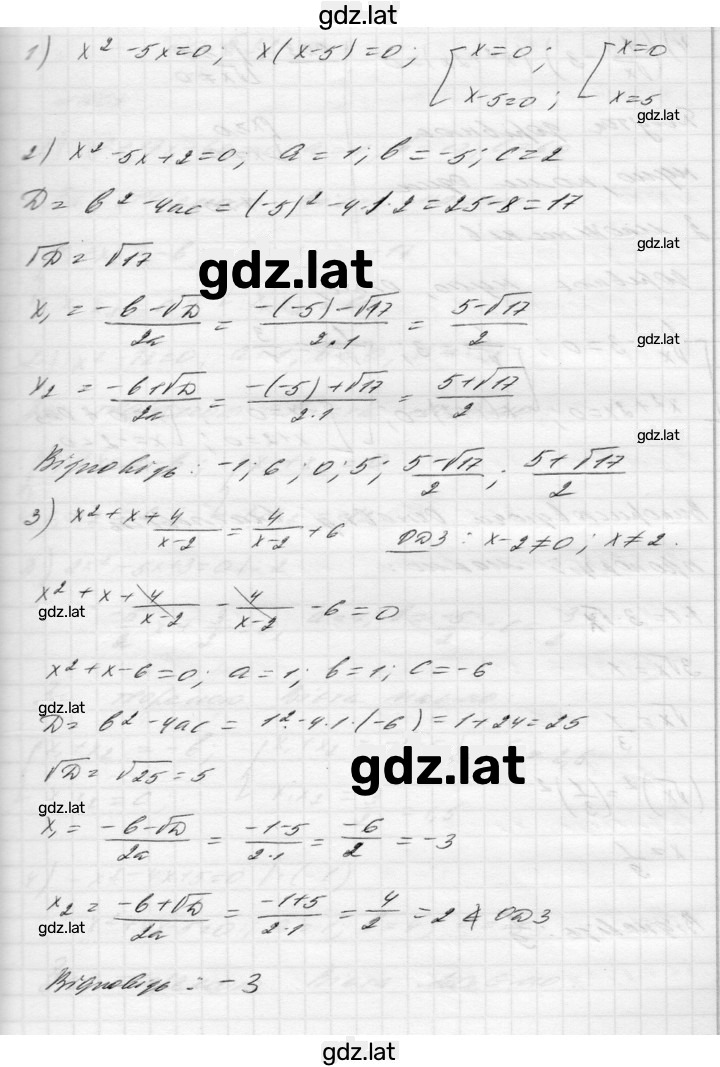 gdz.lat
1) x² - 5x = 0; x(x-5) = 0; [x = 0; [x = 0
x-5 = 0; x = 5
gdz.lat
2) x² - 5x + 2 = 0, a = 1; b = -5; c = 2
D = b² - 4ac = (-5)² - 4·1·2 = 25 - 8 = 17
gdz.lat
√D = √17
gdz.lat
x₁ = (-b - √D)/2a = (-(-5) - √17)/2·1 = (5 - √17)/2
gdz.lat
x₂ = (-b + √D)/2a = (-(-5) + √17)/2·1 = (5 + √17)/2
gdz.lat
Відповідь: -1; 6; 0; 5; (5 - √17)/2; (5 + √17)/2
3) x² + x + 4/(x-2) = 4/(x-2) + 6 ОДЗ: x - 2 ≠ 0; x ≠ 2.
x² + x + 4/(x-2) - 4/(x-2) - 6 = 0
gdz.lat
x² + x - 6 = 0; a = 1; b = 1; c = -6
gdz.lat
D = b² - 4ac = 1² - 4·1·(-6) = 1 + 24 = 25
√D = √25 = 5
gdz.lat
gdz.lat
x₁ = (-b - √D)/2a = (-1-5)/2·1 = -6/2 = -3
x₂ = (-b + √D)/2a = (-1+5)/2·1 = 4/2 = 2 ∉ ОДЗ
gdz.lat
Відповідь: -3
gdz.lat